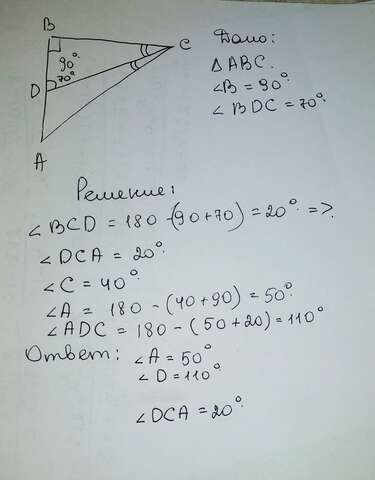 B
C
90°
70°
D
A
Дано:
△ABC.
∠B = 90°
∠BDC = 70°
Решение:
∠BCD = 180 - (90+70) = 20° =>
∠DCA = 20°
∠C = 40°
∠A = 180 - (40+90) = 50°
∠ADC = 180 - (50+20) = 110°
Ответ: ∠A = 50°
∠D = 110°
∠DCA = 20°